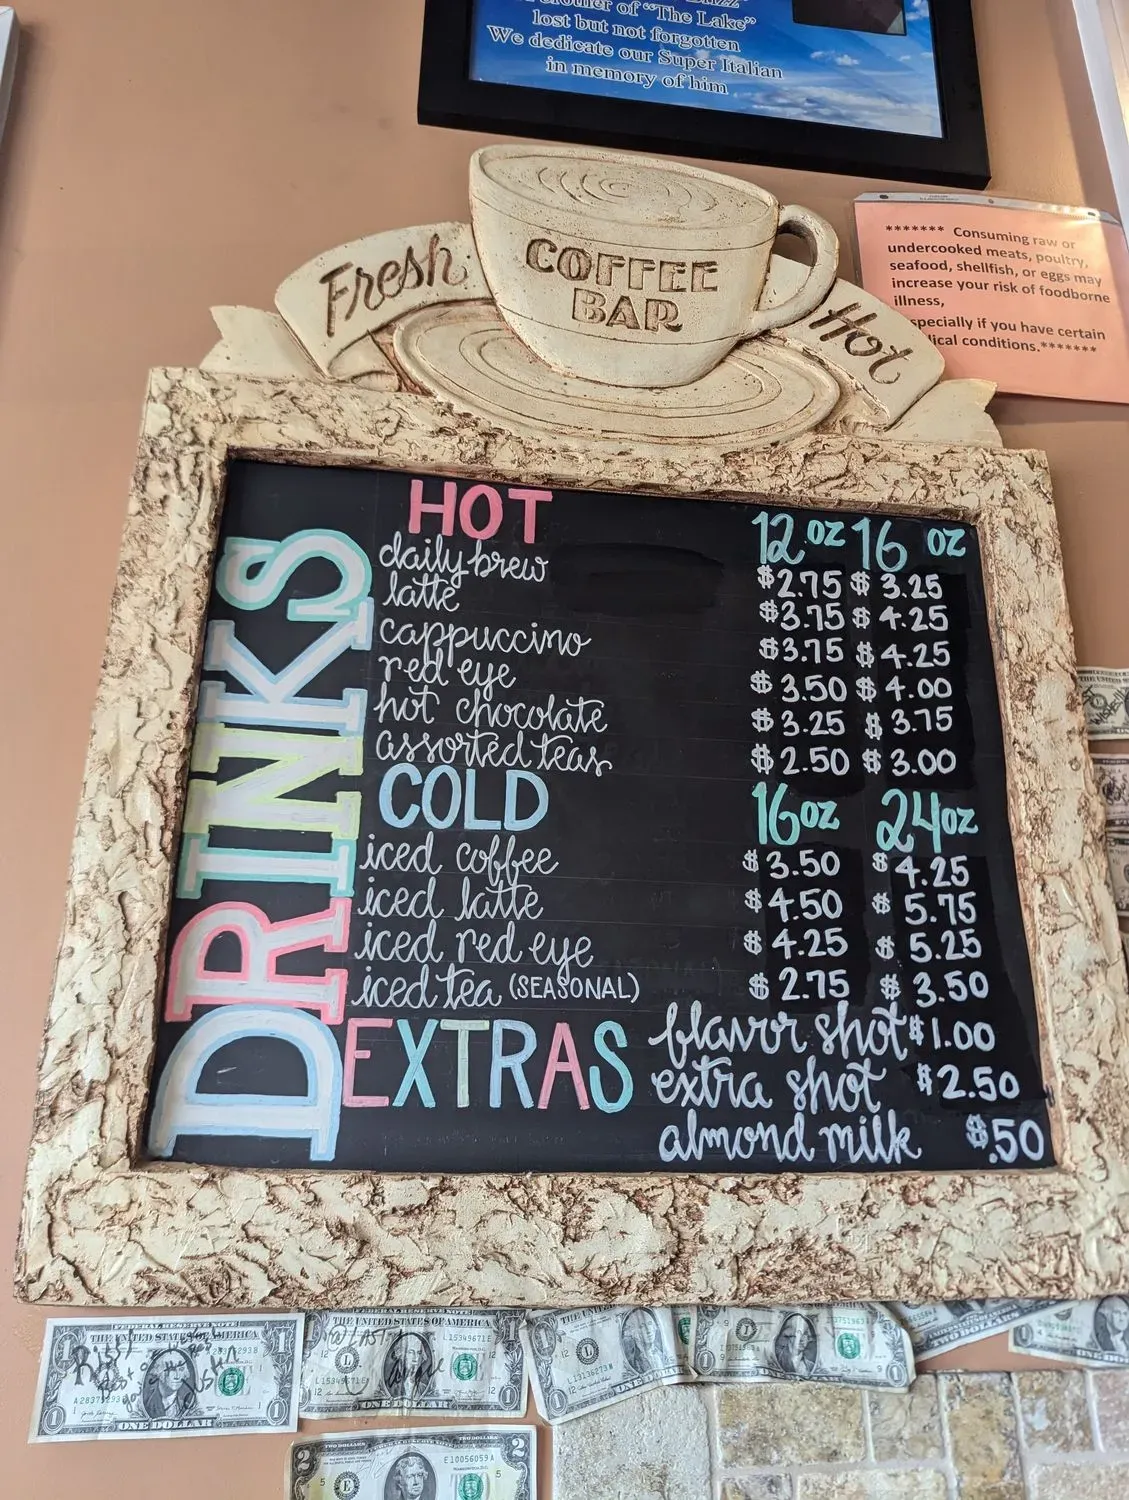 brother of "The Lake"
lost but not forgotten
We dedicate our Super Italian
in memory of him
Fresh
COFFEE
BAR
Hot
******* Consuming raw or
undercooked meats, poultry,
seafood, shellfish, or eggs may
increase your risk of foodborne
illness,
specially if you have certain
ical conditions.*******
DRINKS
HOT 12 oz 16 oz
daily brew $2.75 $3.25
latte $3.75 $4.25
cappuccino $3.75 $4.25
red eye $3.50 $4.00
hot chocolate $3.25 $3.75
assorted teas $2.50 $3.00
COLD 16oz 24oz
iced coffee $3.50 $4.25
iced latte $4.50 $5.75
iced red eye $4.25 $5.25
iced tea (SEASONAL) $2.75 $3.50
EXTRAS
flavor shot $1.00
extra shot $2.50
almond milk $.50
FEDERAL RESERVE NOTE
THE UNITED STATES OF AMERICA
ONE DOLLAR
FEDERAL RESERVE NOTE
THE UNITED STATES OF AMERICA
L15349671E
12
ONE DOLLAR
THE UNITED STATES
L13136273
12
TWO DOLLARS
E10056059A
2